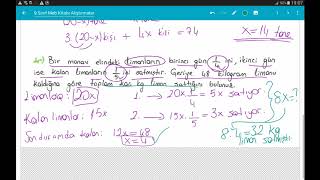 15:07
9.Sınıf Meb Kitabı Alıştırmalar
3.(20-x) kişi + 4x kişi = 74
x = 14 tane
Bir manav elindeki limonların birinci gün 1/4'ini, ikinci gün
ise kalan limonların 1/5'ini satmıştır. Geriye 48 kilogram limonu
kaldığına göre toplam kaç kg limon sattığını bulunuz.
Limonlar: 20x 1. → 20x · 1/4 = 5x satılıyor. 8x = ?
Kalan limonlar: 15x 2. → 15x · 1/5 = 3x satılıyor.
Son durumda kalan: 12x = 48 8·4 = 32 kg
x = 4 limon